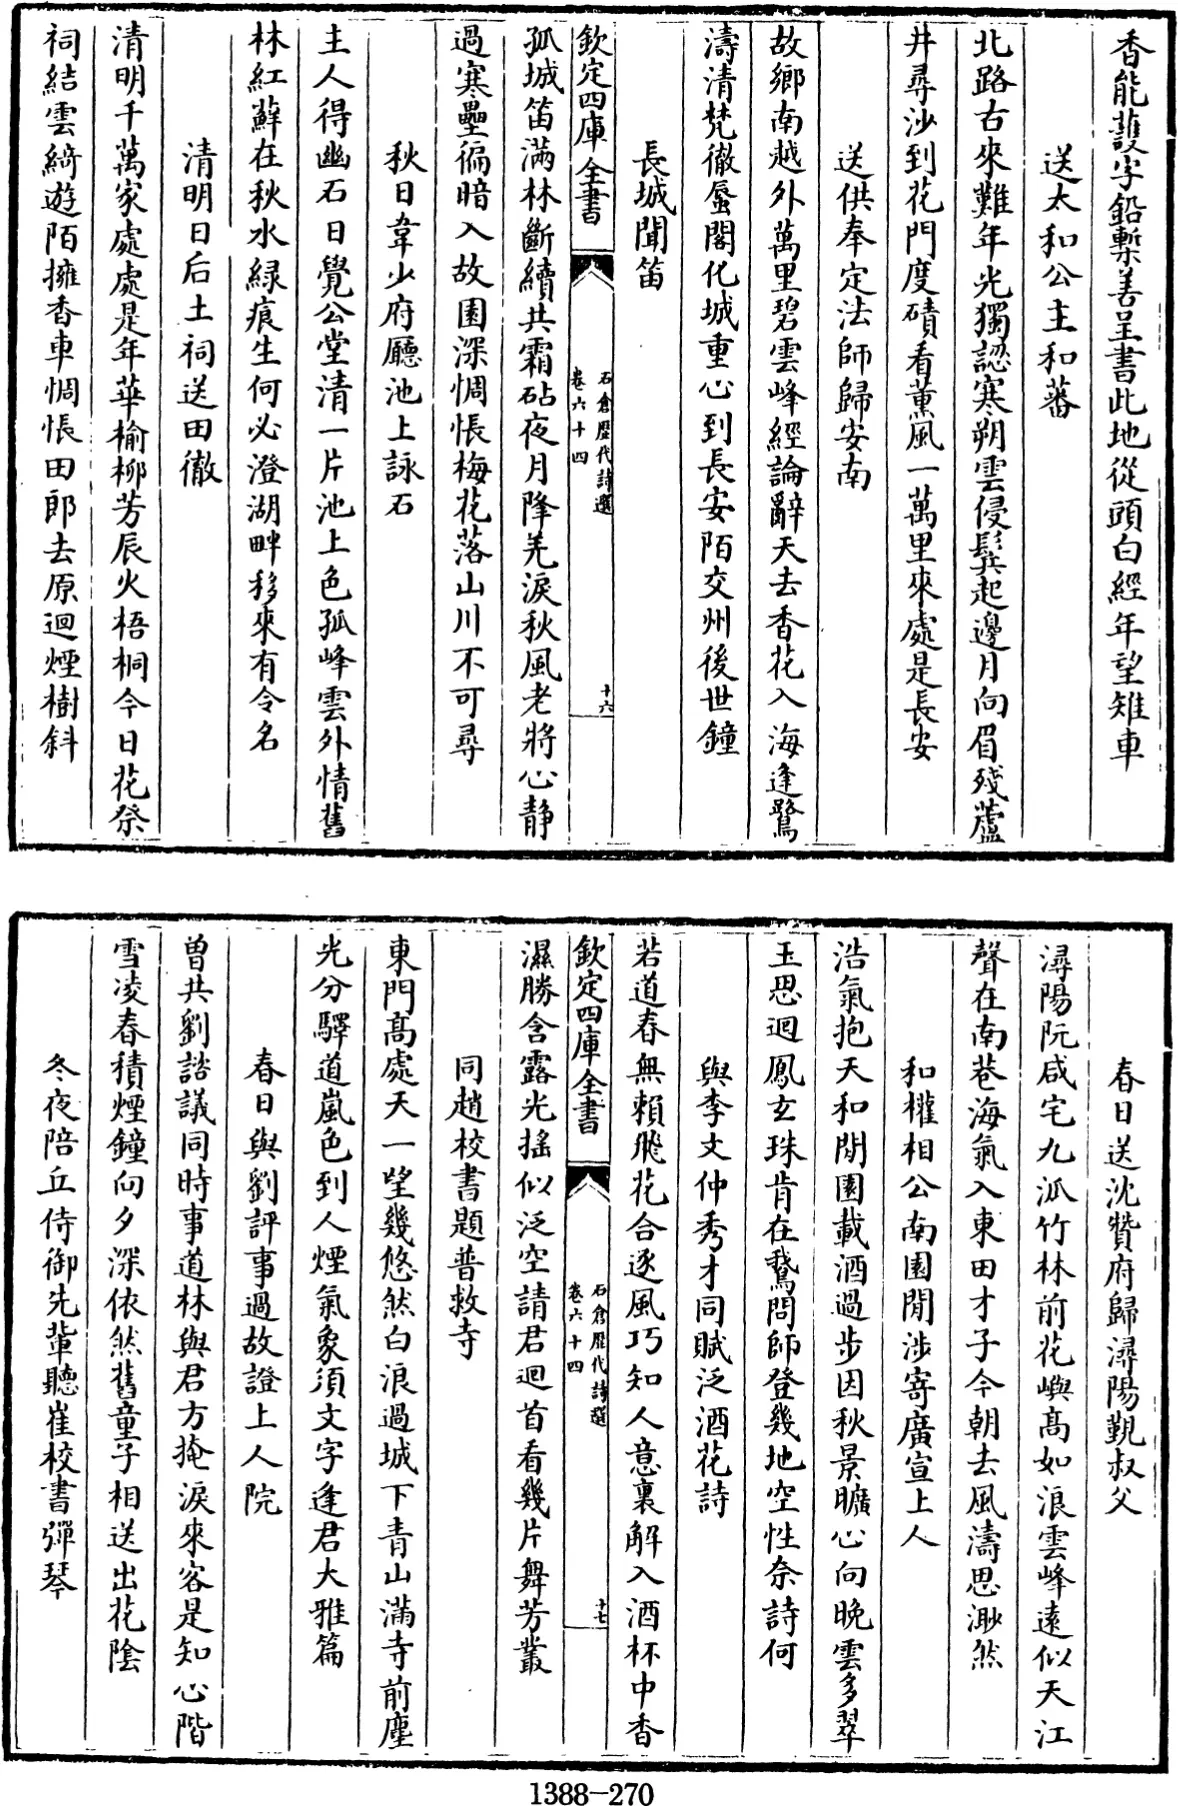 香能護字鉛槧善呈書此地從頭白經年望雉車
送太和公主和蕃
北路古來難年光獨認寒朔雲侵鬂起邊月向眉殘蘆
井尋沙到花門度磧看薰風一萬里來處是長安
送供奉定法師歸安南
故鄉南越外萬里碧雲峰經論辭天去香花入海逢鷺
濤清梵徹蜃閣化城重心到長安陌交州後世鐘
長城聞笛
欽定四庫全書
石倉歷代詩選
卷六十四
十六
孤城笛滿林斷續共霜砧夜月降羌淚秋風老將心靜
過寒壘徧暗入故園深惆悵梅花落山川不可尋
秋日韋少府廳池上詠石
主人得幽石日覺公堂清一片池上色孤峰雲外情舊
林紅蘚在秋水緑痕生何必澄湖畔移來有令名
清明日后土祠送田徹
清明千萬家處處是年華榆柳芳辰火梧桐今日花祭
祠結雲綺遊陌擁香車惆悵田郎去原迴煙樹斜
春日送沈贊府歸潯陽覲叔父
潯陽阮咸宅九派竹林前花嶼高如浪雲峰遠似天江
聲在南巷海氣入東田才子今朝去風濤思渺然
和權相公南園閒涉寄廣宣上人
浩氣抱天和閒園載酒過步因秋景曠心向晚雲多翠
玉思迴鳳玄珠肯在鵞問師登幾地空性奈詩何
與李文仲秀才同賦泛酒花詩
若道春無賴飛花合逐風巧知人意裏解入酒杯中香
欽定四庫全書
石倉歷代詩選
卷六十四
十七
濕勝含露光摇似泛空請君迴首看幾片舞芳叢
同趙校書題普救寺
東門高處天一望幾悠然白浪過城下青山滿寺前塵
光分驛道嵐色到人煙氣象須文字逢君大雅篇
春日與劉評事過故證上人院
曽共劉諮議同時事道林與君方掩淚來客是知心階
雪凌春積煙鐘向夕深依然舊童子相送出花陰
冬夜陪丘侍御先輩聽崔校書彈琴
1388-270